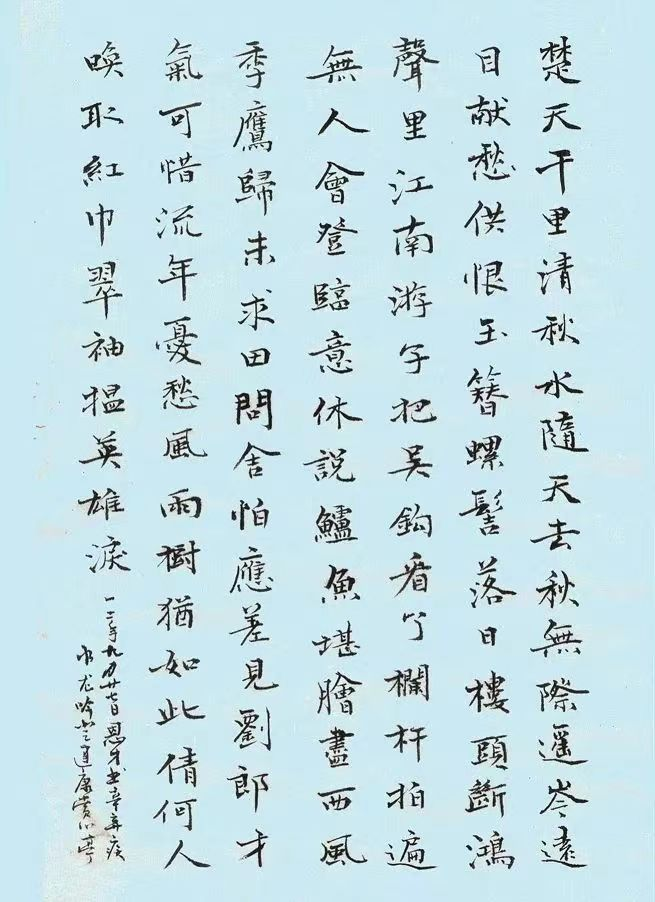 楚天千里清秋水隨天去秋無際遥岑遠
目献愁供恨玉簪螺髻落日樓頭斷鴻
聲里江南游子把吳鈎看了欄杆拍遍
無人會登臨意休説鱸魚堪膾盡西風
季鷹歸未求田問舍怕應羞見劉郎才
氣可惜流年憂愁風雨樹猶如此倩何人
喚取紅巾翠袖揾英雄淚
年九月廿七日恩才书辛弃疾
水龙吟登建康赏心亭